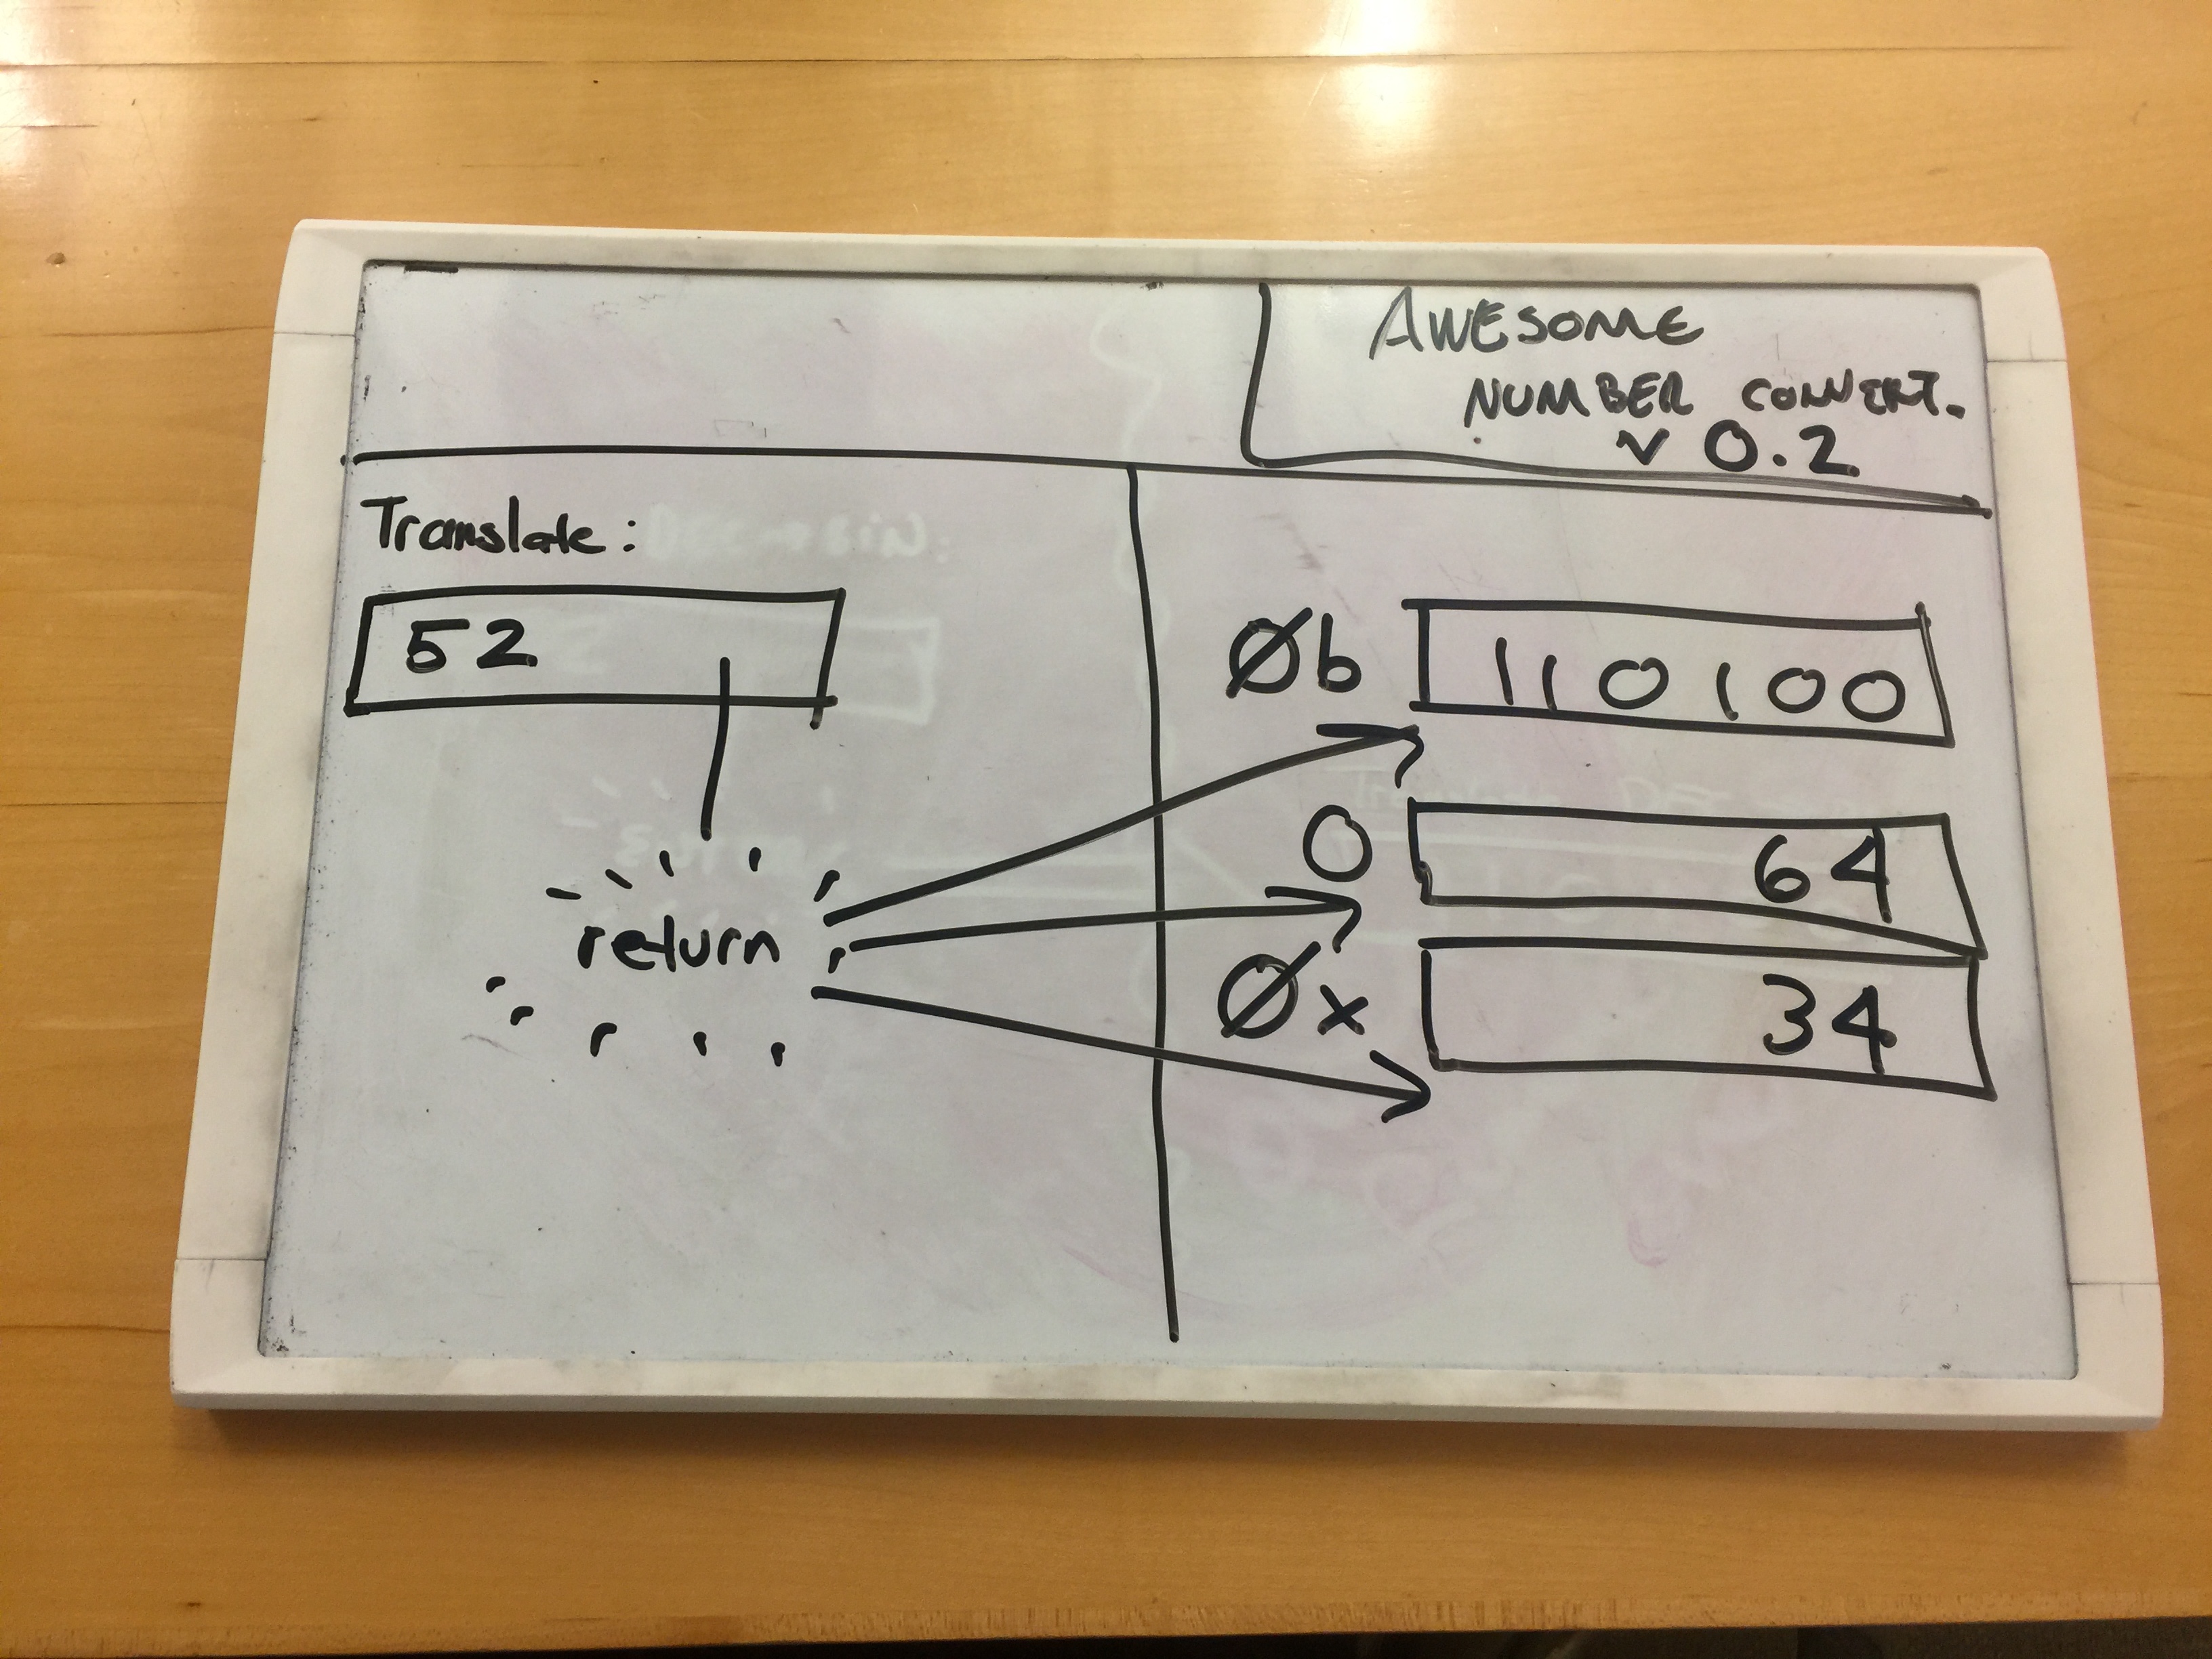 AWESOME
NUMBER CONVERT.
v 0.2
Translate:
52
return
Øb 110100
O 64
Øx 34